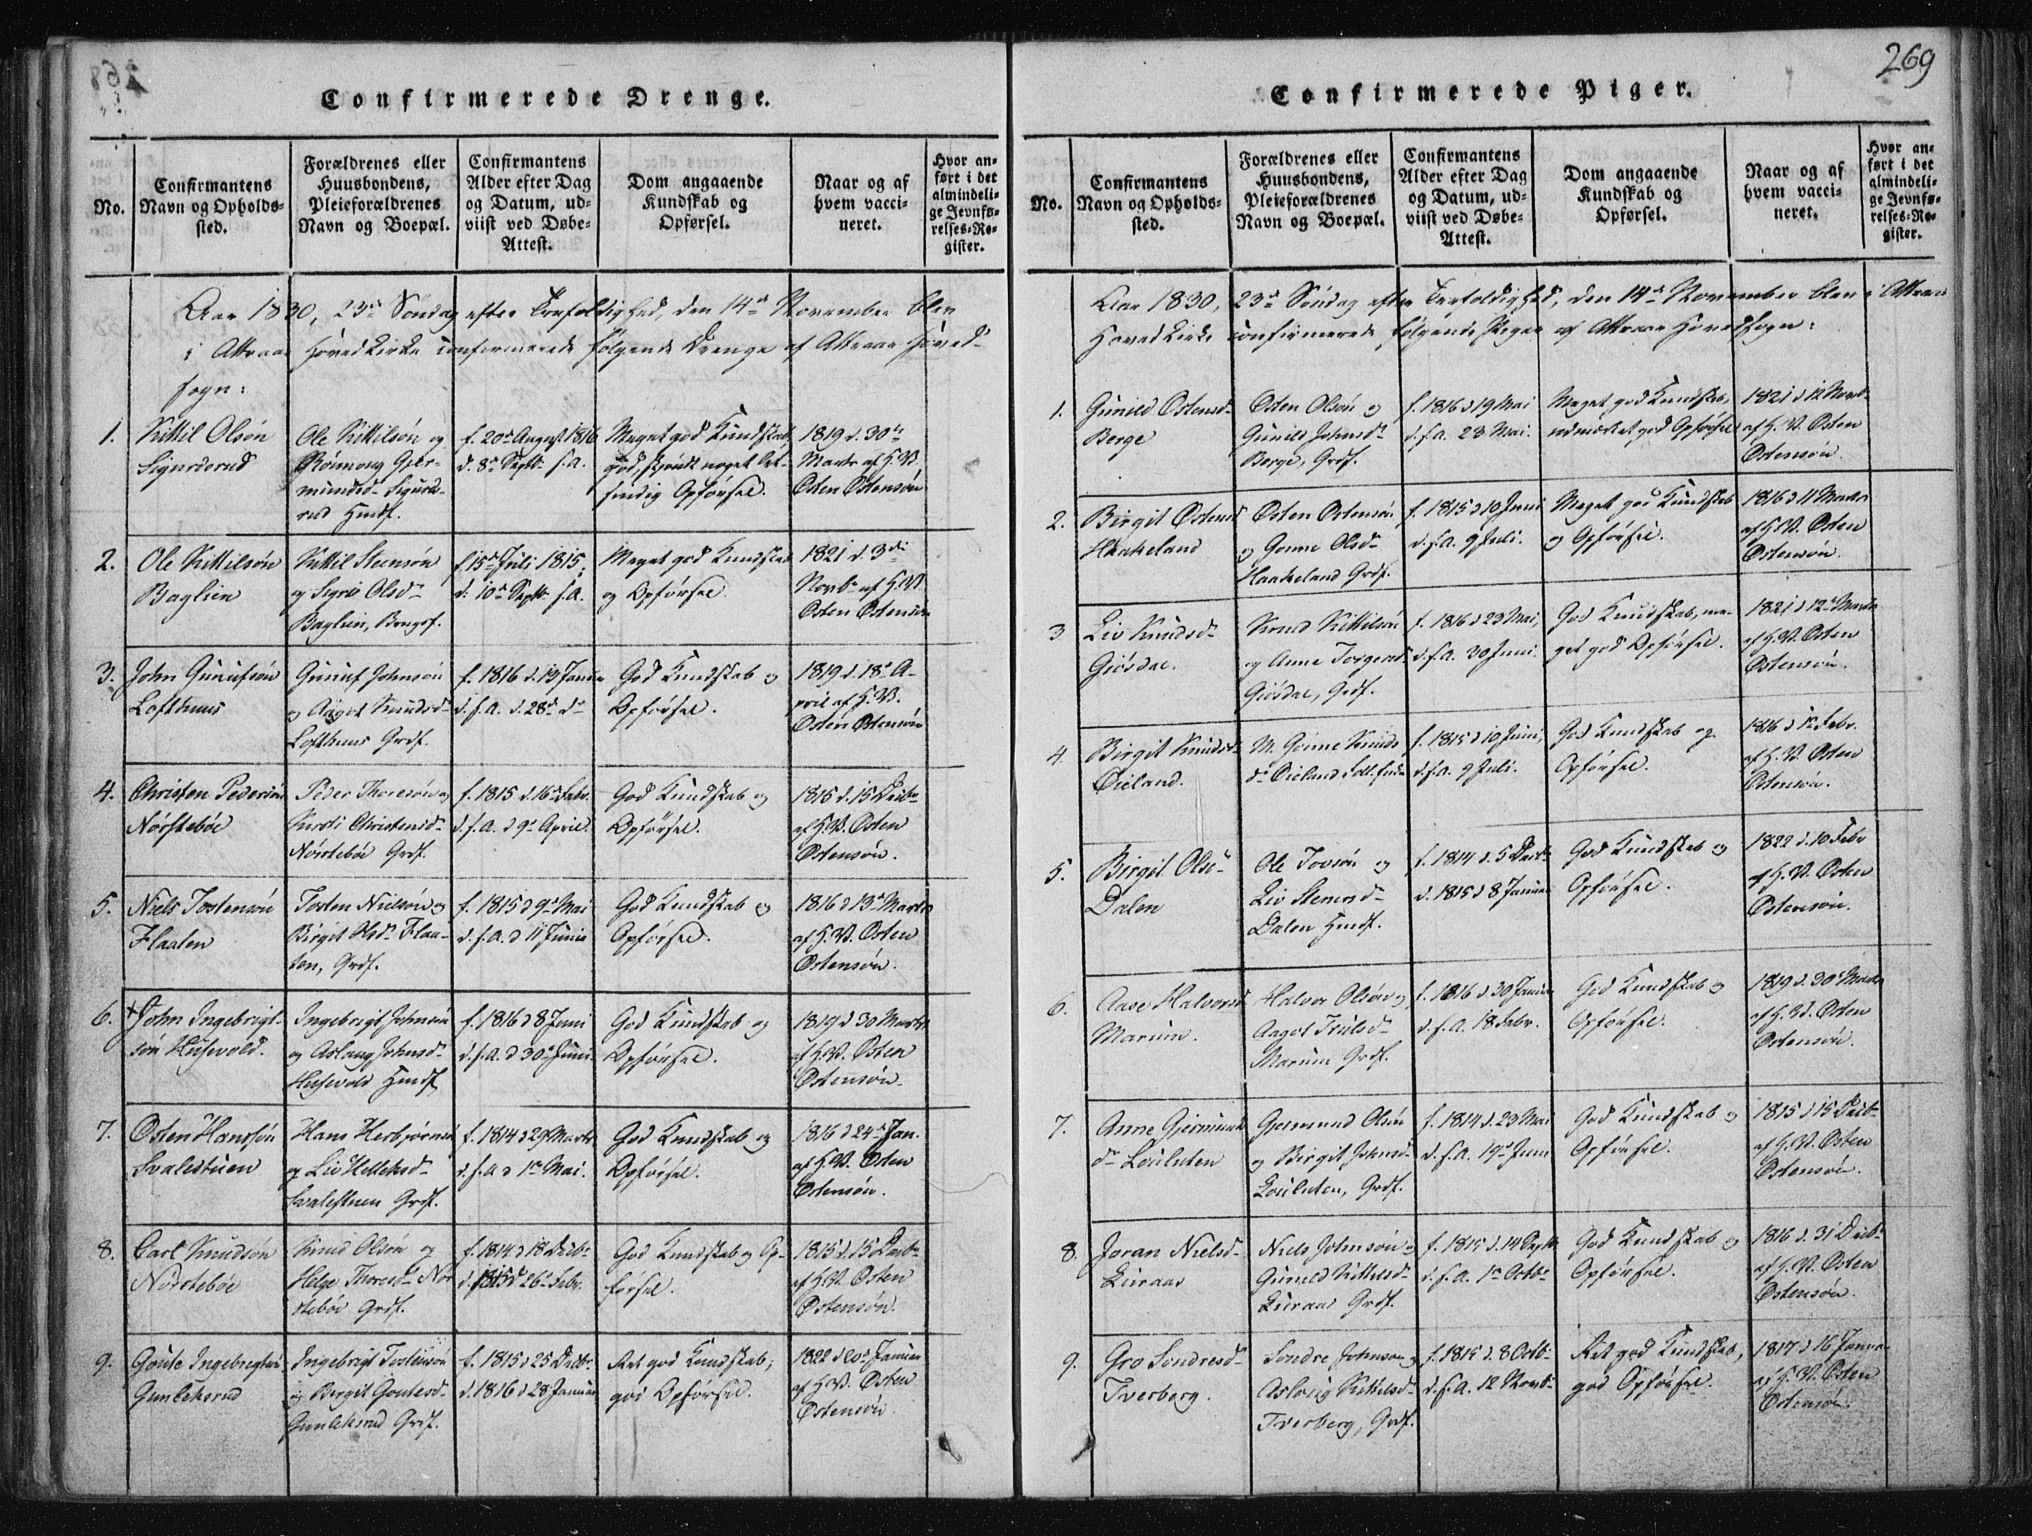 269
Confirmerede Drenge.
No.
Confirmantens
Navn og Opholds-
sted.
Forældrenes eller
Huusbondens,
Pleieforældrenes
Navn og Boepæl.
Confirmantens
Alder efter Dag
og Datum, ud-
viist ved Døbe-
Attest.
Dom angaaende
Kundskab og
Opførsel.
Naar og af
hvem vacci-
neret.
Hvor an-
ført i det
almindeli-
ge Jevnfø-
relses-Re-
gister.
Aar 1830, 23de Søndag efter Trefoldighed, den 14de November blev
i Attraae Hoved Kirke confirmerede følgende Drenge af Attraae Hoved-
sogn:
1.
Kittil Olsøn
Sigursrud
Ole Kittilsøn og
Rønnoug Gjer-
mundsd. Sigurs-
rud Hmdf.
f. 20de August 1816
d. 8de Septbr. s. A.
Meget god Kundskab,
god, skjøndt noget let-
sindig Opførsel.
1819 d. 30te
Marts af H.V.
Østen Østensøn
2.
Ole Kittilsøn
Baglien
Kittil Steensøn
og Sigrid Olsdr
Baglien, Brugsf.
f. 15de Juli 1815,
d. 10de Septbr. s. A.
Meget god Kundskab
og Opførsel.
1821 d. 3di
Novbr. af H.V.
Østen Østensøn
3.
John Gunufsøn
Lofthuus
Gunuf Johnsøn
og Aaget Knudsdr
Lofthuus Grdf.
f. 1816 d. 19 Januar
d. s. A. d. 28de do
God Kundskab og
Opførsel.
1819 d. 18de A-
pril af H.V.
Østen Østensøn
4.
Christen Pedersøn
Nørstebøe
Peder Thoresøn og
Kirsti Christensdr
Nørstebøe Grdf.
f. 1815 d. 16de Febr.
d. s. A. d 9de April.
God Kundskab og
Opførsel.
1815 d. 15 Decbr
af H.V. Østen
Østensøn.
5.
Niels Tostensøn
Flaaten
Tosten Nielsøn og
Birgit Olsdr Flaa-
ten, Grdf.
f. 1815 d 9de Mai
d. s. A. d 11 Junii
God Kundskab og
Opførsel.
1816 d 13de Marts
af H.V. Østen
Østensøn.
6.
John Ingebrigt-
søn Husevold.
Ingebrigt Johnsøn
og Aslaug Johnsdr
Husevold Hmdf.
f. 1816 d 8 Juni
d. s. A. d 30de Juni.
God Kundskab og
Opførsel.
1819 d 30 Marts
af H.V. Østen
Østensøn.
7.
Østen Hanssøn
Svalestuen
Hans Herbjørnsøn
og Liv Helleksdr
Svalestuen Grdf.
f. 1814 d 29 Marts
d. s. A d 1te Mai.
God Kundskab og
Opførsel.
1816 d 24de Jan.
af H.V. Østen
Østensøn.
8.
Carl Knudsøn
Nordstebøe
Knud Olsøn og
Helge Thoresdr Nør
stebøe Grdf.
f. 1814 d 18 Decbr
d. 1815 d 26de Febr.
God Kundskab og Op-
førsel.
1815 d. 15 Decbr
af H.V. Østen
Østensøn.
9.
Goute Ingebrigtsøn
Gunleksrud
Ingebrigt Tostensøn
og Birgit Goutesdr
Gunleksrud Grdf.
f. 1815 d 25 Decbr.
d. 1816 d 28 Januar
Ret god Kundskab,
god Opførsel.
1822 d 20de Januar
af H.V. Østen
Østensøn
Confirmerede Piger.
No.
Confirmantens
Navn og Opholds-
sted.
Forældrenes eller
Huusbondens,
Pleieforældrenes
Navn og Boepæl.
Confirmantens
Alder efter Dag
og Datum, ud-
viist ved Døbe-
Attest.
Dom angaaende
Kundskab og
Opførsel.
Naar og af
hvem vacci-
neret.
Hvor an-
ført i det
almindeli-
ge Jevnfø-
relses-Re-
gister.
Aar 1830, 23de Søndag efter Trefoldighed, den 14de November blev i Attraae
Hoved Kirke confirmerede følgende Piger af Attraae Hovedsogn:
1.
Gunild Østensdr
Berge
Østen Olsøn og
Gunild Johnsdr
Berge, Grdf.
f. 1816 d 19 Mai
d. s. A. 23 Mai.
Meget god Kundskab,
udmærket god Opførsel
1821 d. 12 Novbr.
af H.V. Østen
Østensøn.
2.
Birgit Østensd
Haakeland
Østen Østensøn
og Gonne Olsdr
Haakeland Grdf.
f. 1815 d 10 Juni
d. s. A. 9 Juli.
Meget god Kundskab
og Opførsel.
1816 d 11 Marts
af H.V. Østen
Østensøn.
3
Liv Knudsdr
Gjøsdal.
Knud Kittilsøn
og Anne Torgersdr
Gjøsdal, Grdf.
f. 1816 d 23 Mai,
d. s. A. 30 Juni.
God Kundskab, me-
get god Opførsel.
1821 d 12te Marts
af H.V. Østen
Østensøn.
4.
Birgit Knudsdr
Øieland.
M. Gonne Knuds
dr Øieland
f. 1815 d 10 Juni,
d. s. A. 9 Juli.
God Kundskab og
Opførsel.
1816 d 1te Febr.
af H.V. Østen
Østensøn.
5.
Birgit Olsdr
Dalen
Ole Tovsøn og
Liv Stenersdr
Dalen Hmdf.
f. 1814 d. 5 Decbr
d. 1815 d 8 Januar
God Kundskab og
Opførsel.
1822 d. 10 Febr
af H.V. Østen
Østensøn.
6.
Aase Halvorsd
Marum.
Halvor Olsøn og
Aagot Trulsdr
Marum Grdf.
f. 1816 d 30 Januar
d. s. A. 18 Febr.
God Kundskab og
Opførsel.
1819 d. 30 Marts
af H.V. Østen
Østensøn.
7.
Anne Gjermunds
dr Louluten
Gjermund Olsøn
og Birgit Johnsdr
Louluten, Grdf.
f. 1814 d. 23 Mai
d. s. A. 19de Juni
God Kundskab og
Opførsel.
1815 d 15 Decbr
af H.V. Østen
Østensøn.
8.
Joran Nielsdr
Luraas
Niels Johnsøn og
Gunild Kittilsdr
Luraas Grdf.
f. 1815 d. 14 Septbr
d. s. A. 1te Octbr
God Kundskab og
Opførsel.
1816 d. 31 Decbr
af H.V. Østen
Østensøn.
9.
Gro Sondresdr
Tverberg.
Sondre Johnsøn og
Asloug Kittilsdr
Tverberg, Grdf.
f. 1815 d. 8 Octbr
d. s. A. 12 Novbr
Ret god Kundskab,
god Opførsel.
1817 d 16 Januar
af H.V. Østen
Østensøn.